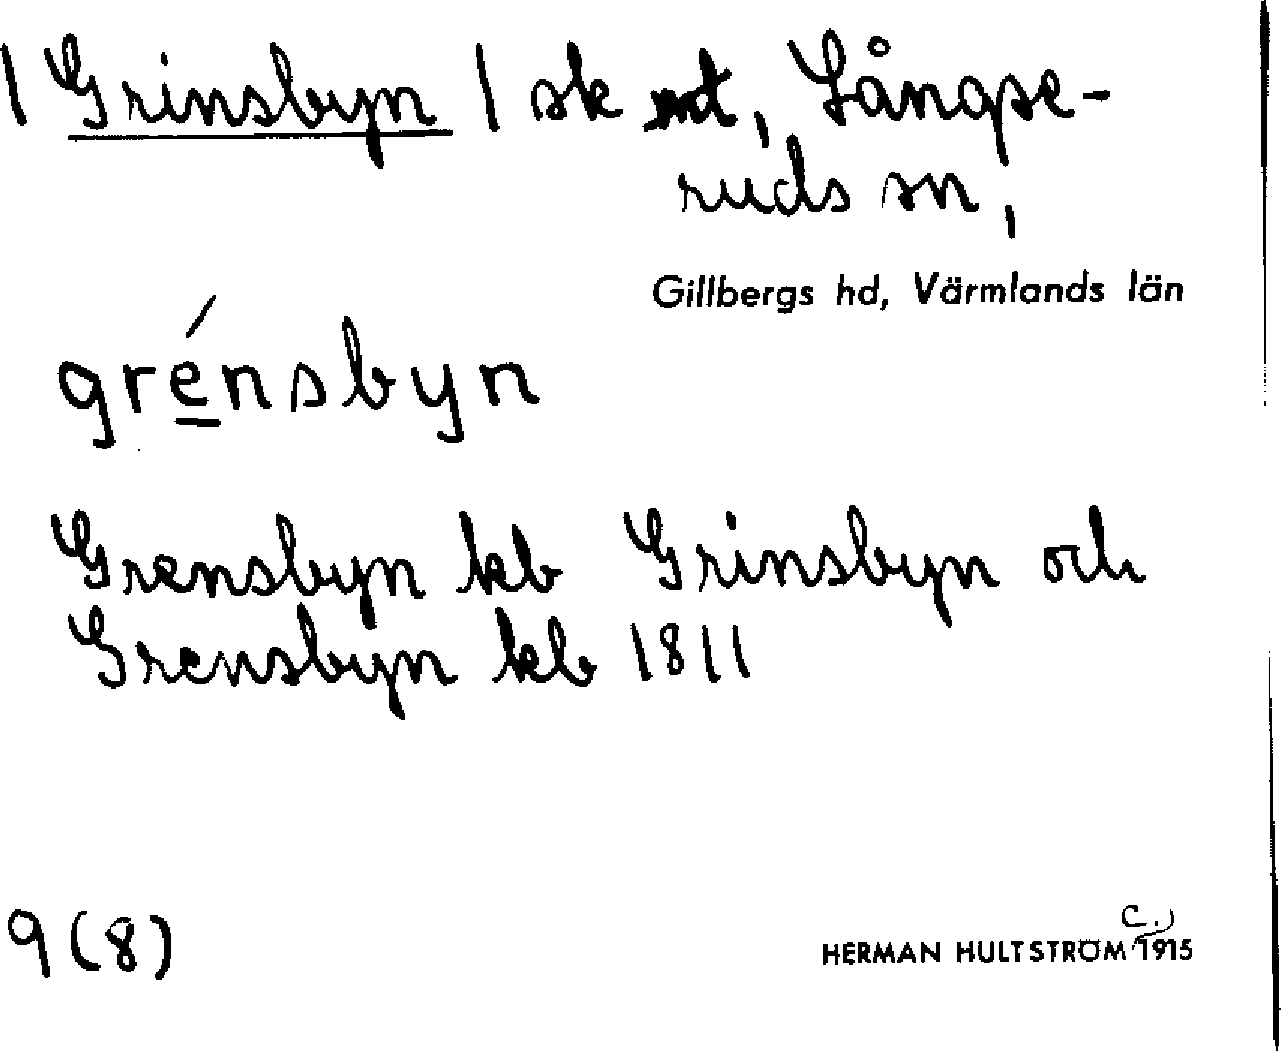 | Grinsbyn | sk mt, Långse-
ruds sn,
Gillbergs hd, Värmlands län
grénsbyn
Grensbyn kb Grinsbyn och
Grensbyn kb 1811
9(8)
HERMAN HULTSTRÖM C. 1915